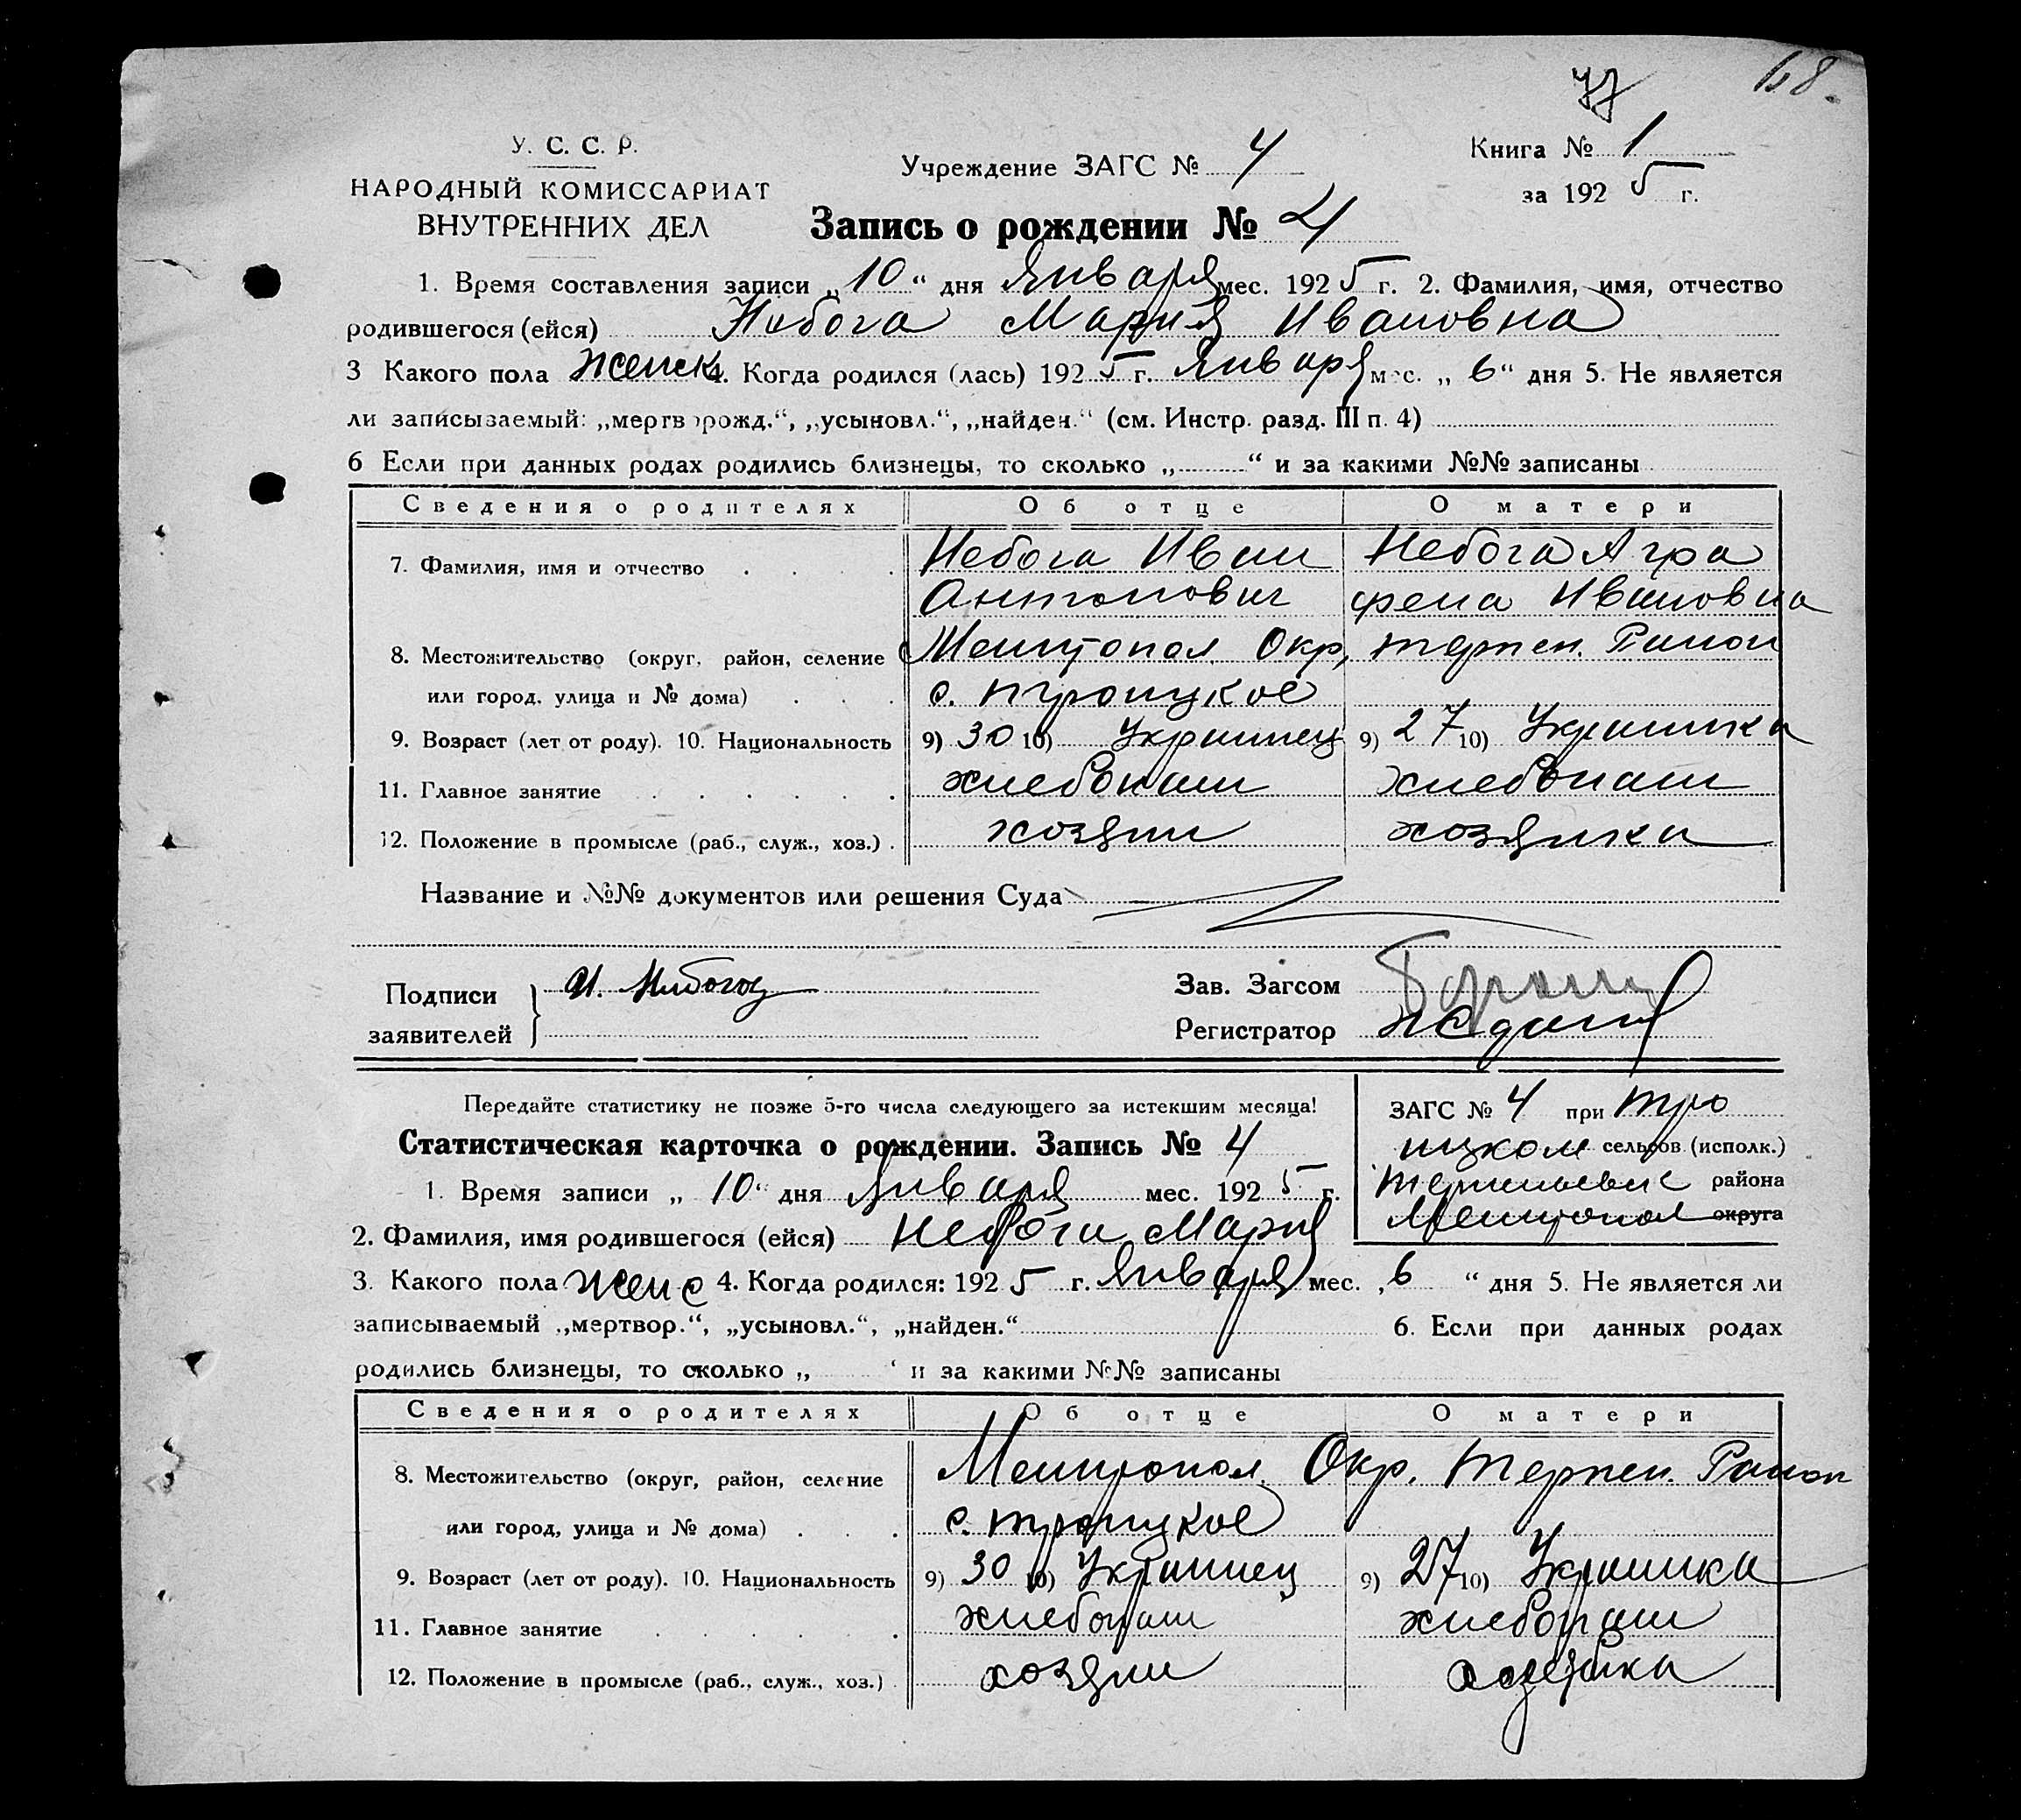 77 68.
У. С. С. Р.
НАРОДНЫЙ КОМИССАРИАТ
ВНУТРЕННИХ ДЕЛ
Учреждение ЗАГС № 4
Книга № 1
за 1925 г.
Запись о рождении № 4
1. Время составления записи „10“ дня Января мес. 1925 г. 2. Фамилия, имя, отчество
родившегося (ейся) Небога Мария Ивановна
3 Какого пола женск 4. Когда родился (лась) 1925 г. Января мес. „6“ дня 5. Не является
ли записываемый: „мертворожд.“, „усыновл.“, „найден.“ (см. Инстр. разд. III п. 4)
6 Если при данных родах родились близнецы, то сколько „ “ и за какими №№ записаны
Сведения о родителях Об отце О матери
7. Фамилия, имя и отчество Небога Иван Небога Агра
Антонович фена Ивановна
8. Местожительство (округ, район, селение Мелитопол. Окр, терпен. Район
или город, улица и № дома) с. троицкое
9. Возраст (лет от роду). 10. Национальность 9) 30 10) Украинец 9) 27 10) Украинка
11. Главное занятие хлебопаш хлебопаш
12. Положение в промысле (раб., служ., хоз.) хозяин хозяика
Название и №№ документов или решения Суда
Подписи заявителей И. Небога
Зав. Загсом
Регистратор
Передайте статистику не позже 5-го числа следующего за истекшим месяца!
Статистическая карточка о рождении. Запись № 4
ЗАГС № 4 при тро
ицком сельсов. (исполк.)
терпеньевск района
Мелитопол округа
1. Время записи „10“ дня Января мес. 1925 г.
2. Фамилия, имя родившегося (ейся) Небога Мария
3. Какого пола женс 4. Когда родился: 1925 г. Января мес. „6“ дня 5. Не является ли
записываемый „мертвор.“, „усыновл.“, „найден.“ 6. Если при данных родах
родились близнецы, то сколько „ “ и за какими №№ записаны
Сведения о родителях Об отце О матери
8. Местожительство (округ, район, селение Мелитопол. Окр. терпен. Район
или город, улица и № дома) с. троицкое
9. Возраст (лет от роду). 10. Национальность 9) 30 10) Украинец 9) 27 10) Украинка
11. Главное занятие хлебопаш хлебопаш
12. Положение в промысле (раб., служ., хоз.) хозяин хозяика